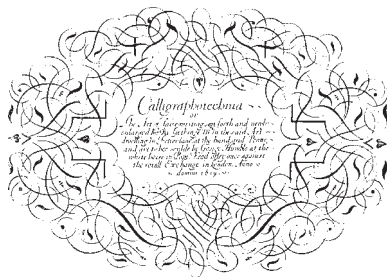 Calligraphotechnia
or
The Art of faire writing sett forth and newly
enlarged by Ri: Gething Mr in the said Art
dwelling in Fetter-lane at the hand and Penn
and are to be sould by George Humble at the
white horse in Popes head Alley over against
the royall Exchange in london. Anno
domini 1619.